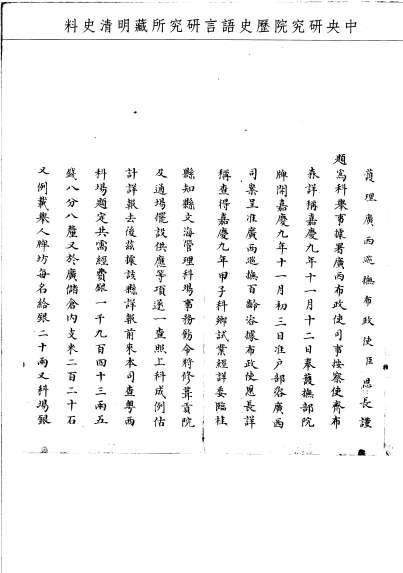 中央研究院歷史語言研究所藏明清史料
護理廣西巡撫布政使臣恩長謹
題為科舉事據署廣西布政使司事按察使齊布
森詳稱嘉慶九年十一月十二日奉護撫部院
牌開嘉慶九年十一月初三日准戶部咨廣西
司案呈准廣西巡撫百齡咨據布政使恩長詳
稱查得嘉慶九年甲子科鄉試業經詳委臨桂
縣知縣文海管理科場事務飭令將修葺貢院
及通場擺設供應等項逐一查照上科成例估
計詳報去後茲據該縣詳報前來本司查粵西
科場題定共需經費銀一千九百四十三兩五
錢八分八釐又於廣儲倉內支米二百二十石
又例載舉人牌坊每名給銀二十兩又科場銀